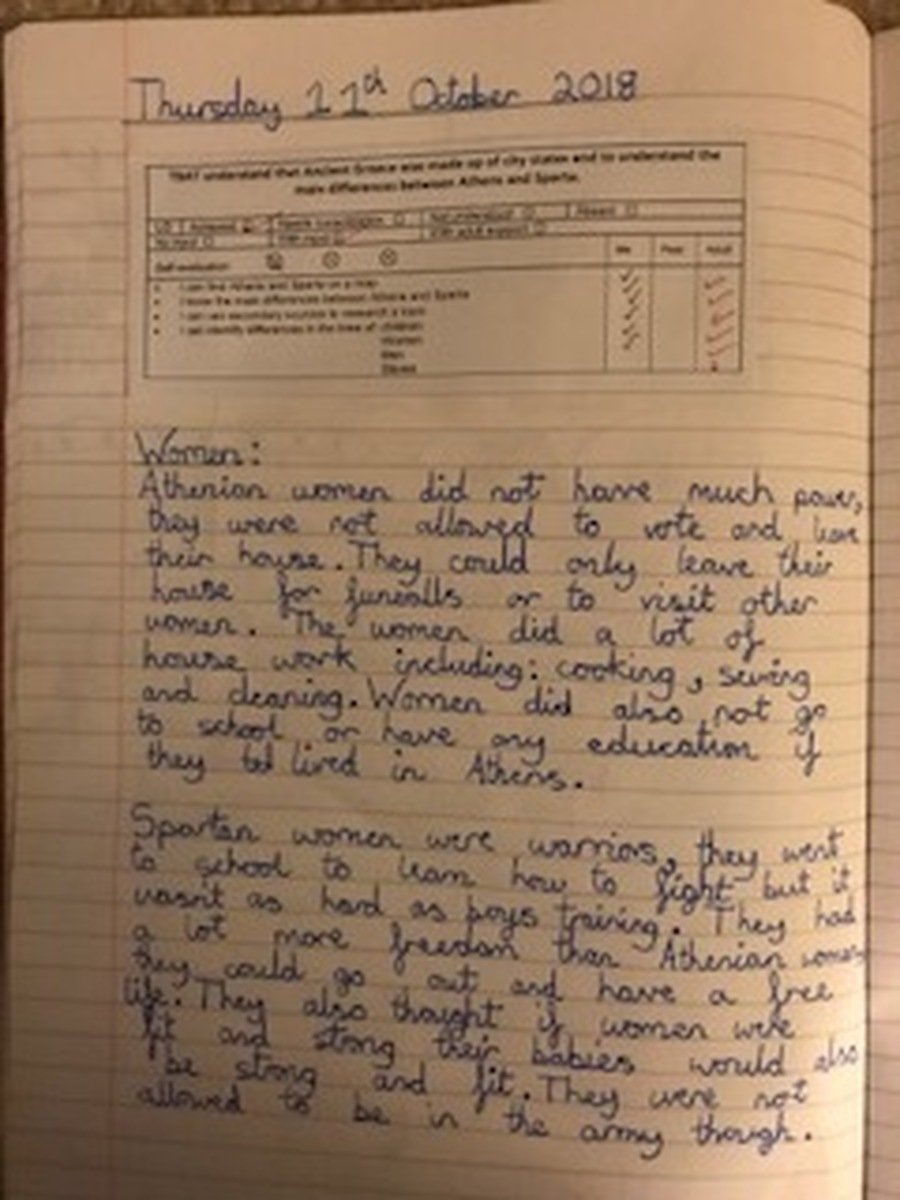 Thursday 11th October 2018
TBAT understand that Ancient Greece was made up of city states and to understand the
main differences between Athens and Sparta.
Self evaluation
Me Peer Adult
I can find Athens and Sparta on a map
I know the main differences between Athens and Sparta
I can use secondary sources to research a topic
I can identify differences in the lives of: children
Women
Men
Slaves
Women:
Athenian women did not have much power,
they were not allowed to vote and leave
their house. They could only leave their
house for funealls or to visit other
women. The women did a lot of
house work including: cooking, sewing
and cleaning. Women did also not go
to school or have any education if
they lived in Athens.
Spartan women were warriors, they went
to school to learn how to fight but it
wasn't as hard as boys training. They had
a lot more freedom than Athenian women
they could go out and have a free
life. They also thought if women were
fit and strong their babies would also
be strong and fit. They were not
allowed to be in the army though.